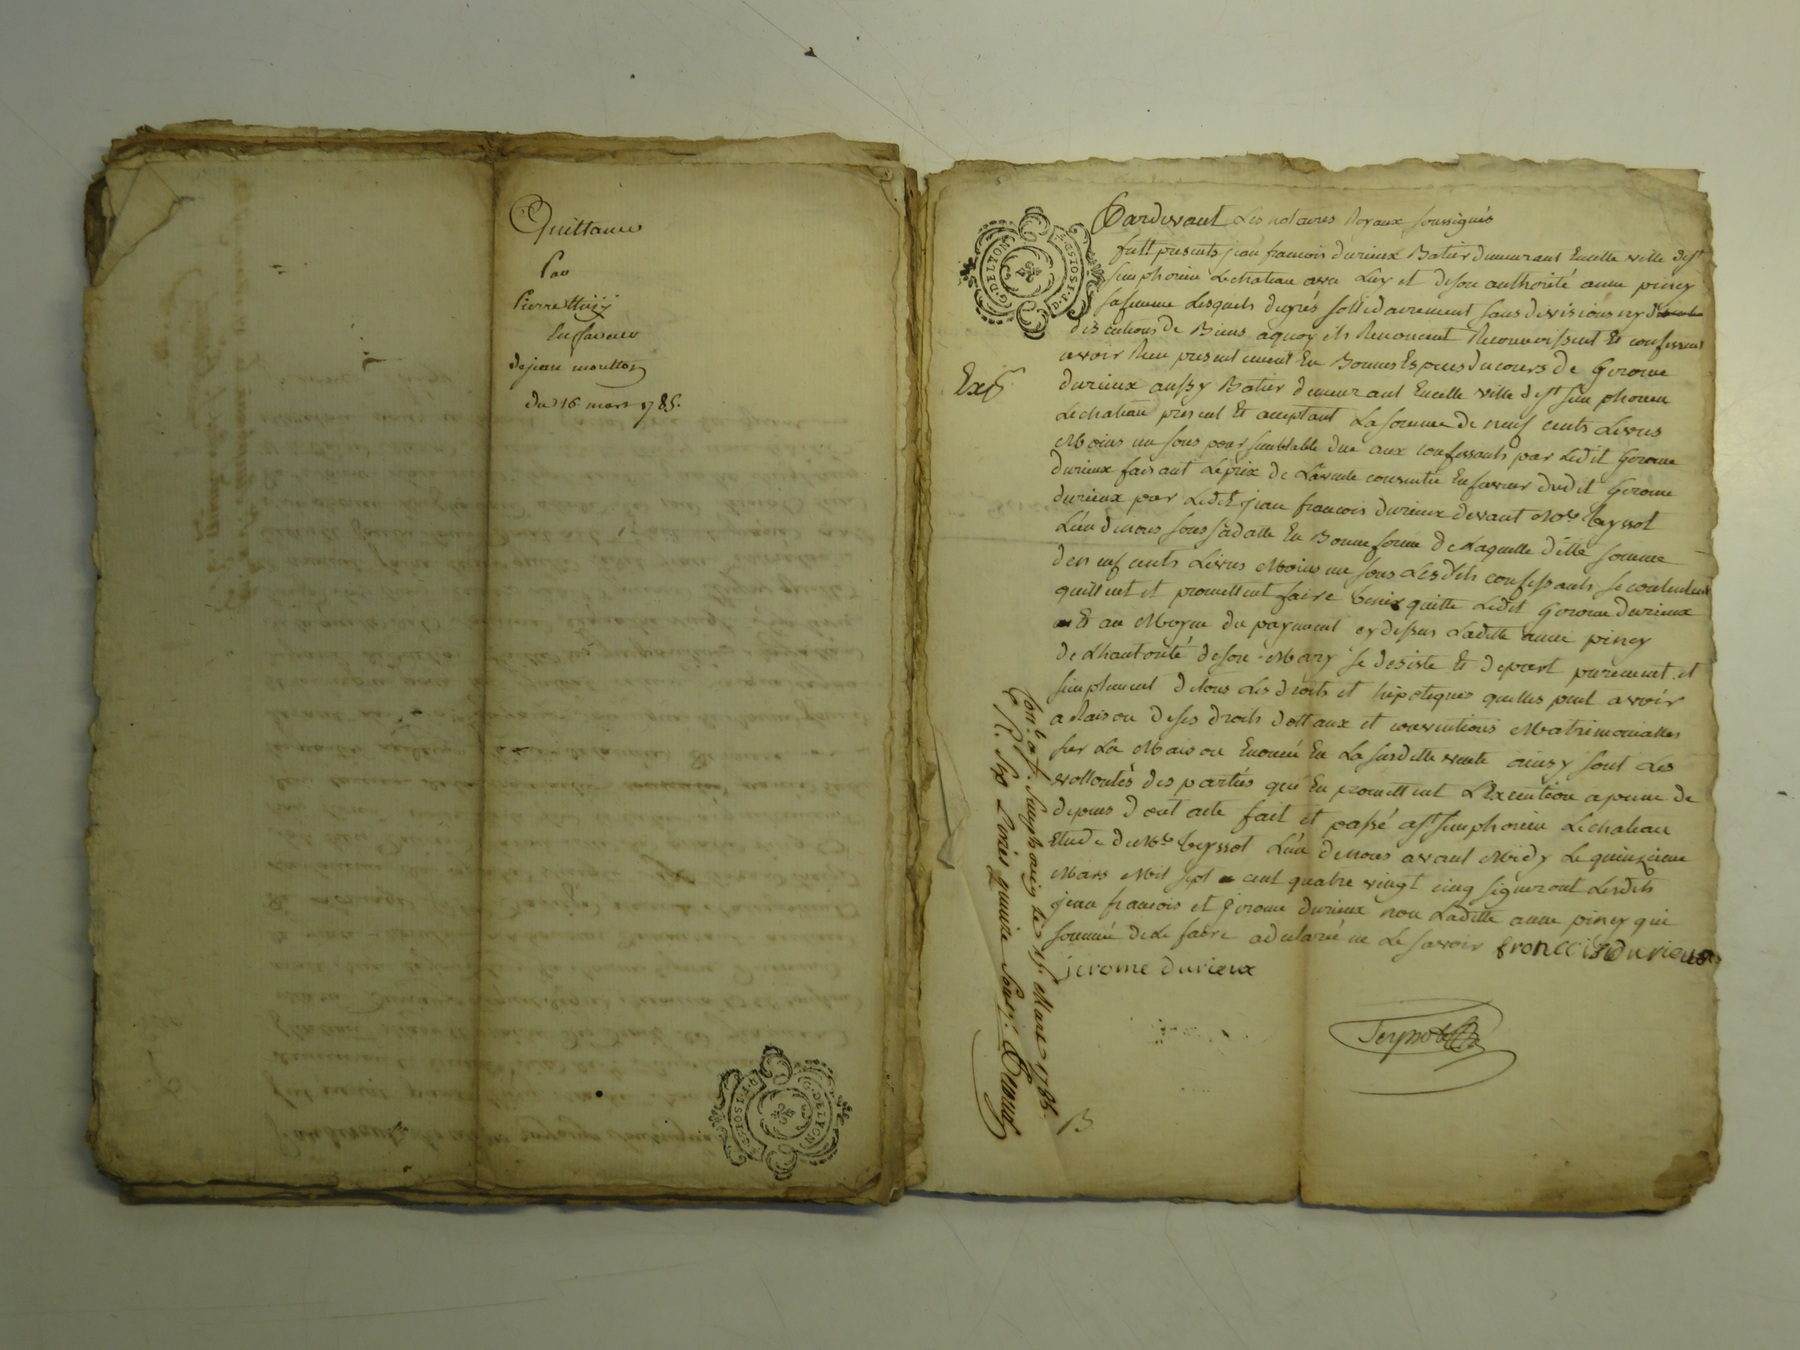 Quittance
Par
Pierre
En faveur
de jean moretton
du 16 mars 1785.
G. DE LYON
Pardevant Les notaires Royaux soussignés
futt presents jean francois durieux Batier demeurant Encette ville de st
simphorien Lechateau avec Luy et desou authorité anne piney
sa femme Lesquels degrés sollidairement sans divisions ny
discutions de Biens aquoy ils Renoncent Reconnoissent Et confessent
avoir Reçu presentement En Bonnes Especes du cours de Gerome
Exp
durieux aussy Batier demeurant Encette ville de st simphorien
Lechateau present Et acceptant La somme de neuf cents Livres
Moins un sous pour semblable due aux confessants par Ledit Gerome
durieux faisant Leprix de Lavente consentie En faveur dudit Gerome
durieux par Ledit jean francois durieux devant Me teyssot
L'un denous sous sadatte En Bonne forme de Laquelle ditte somme
de neuf cents Livres Moins un sous Lesdits confessants se contentent
quittent et promettent faire tenir quitte Ledit Gerome durieux
Et au Moyen du payement cy dessus Laditte anne piney
de Lhautorité deson Mary se desiste Et depart purement et
simplement detous Les droits et hipoteques quelles peut avoir
a Raison deses droits dottaux et conventions Matrimonialles
sur La Maison Enoncée En La susditte vente ainsy sont Les
vollontés des parties qui En promettent L'Execution apeine de
depens dont acte fait et passé a st simphorien Lechateau
Etude du Me teyssot L'un denous avant Midy Le quinzieme
Mars Mil sept cent quatre vingt cinq signeront Lesdits
jean francois et Gerome durieux non Laditte anne piney qui
sommée de Le faire a declaré ne Le savoir francois durieux
jerome durieux
Teyssot
Con.lé a st. Simphorien le 15. Mars 1785.
R. Livres quinze Sous.
B
G. DE LYON